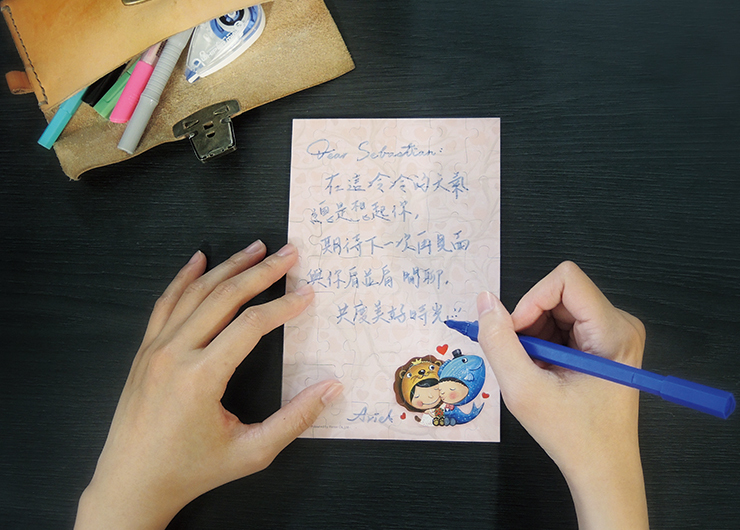 Dear Sebastian:
在這冷冷的天氣
總是想起你,
期待下一次再見面
與你肩並肩 閒聊,
共度美好時光...
Ariel